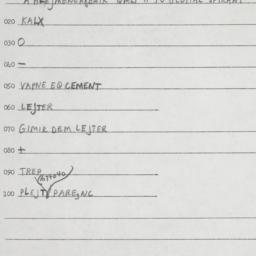 020 KALX
030 O
040 -
050 VAPNE EQ CEMENT
060 LEJTER
070 GIMIR DEM LEJTER
080 +
090 TREP
100 PLEJT PARESNC